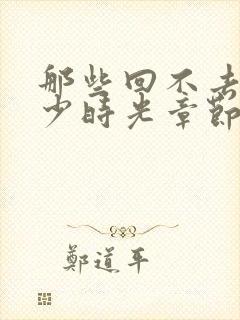 那些回不去
少時光章節
鄭道平